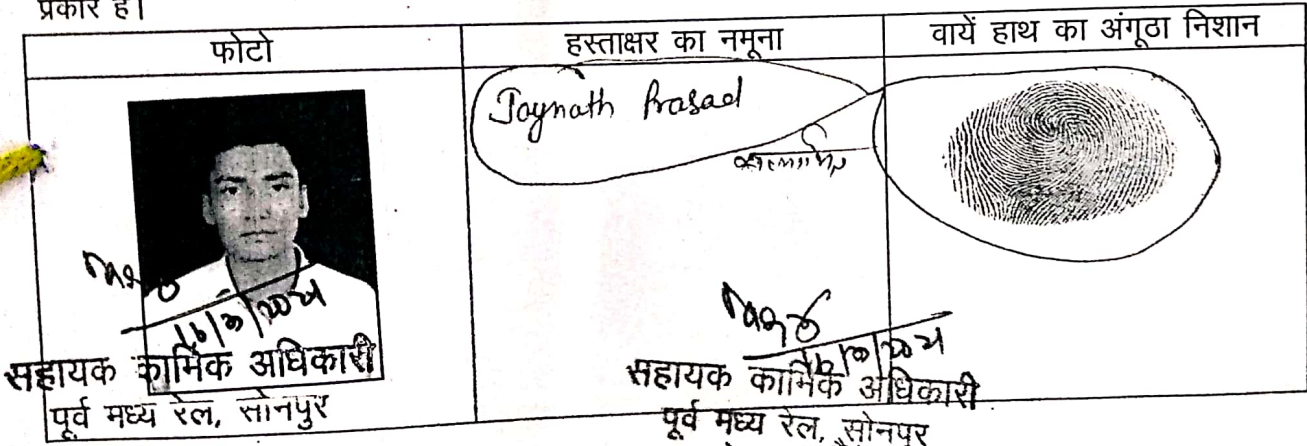 प्रकार है।
फोटो
हस्ताक्षर का नमूना
वायें हाथ का अंगूठा निशान
Jaynath Prasad
सहायक कार्मिक अधिकारी
पूर्व मध्य रेल, सोनपुर
सहायक कार्मिक अधिकारी
पूर्व मध्य रेल, सोनपुर